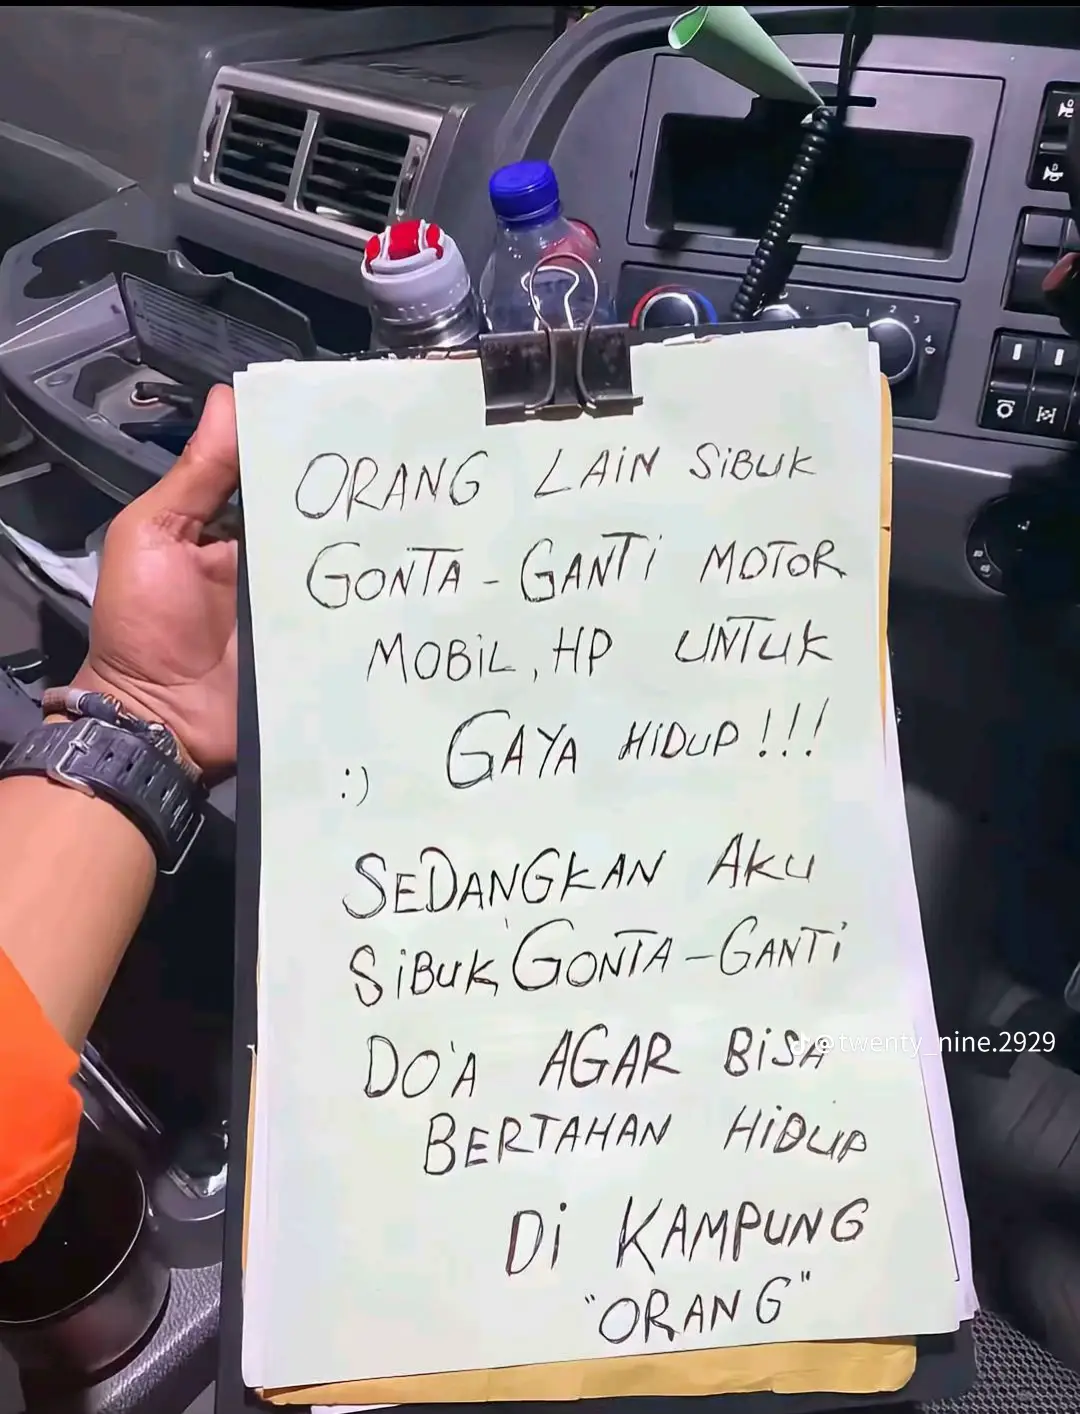 ORANG LAIN SIBUK
GONTA-GANTI MOTOR
MOBIL, HP UNTUK
GAYA HIDUP!!!
:)
SEDANGKAN AKU
SIBUK GONTA-GANTI
DO'A AGAR BISA
@twenty_nine.2929
BERTAHAN HIDUP
DI KAMPUNG
"ORANG"
1 2 3 4